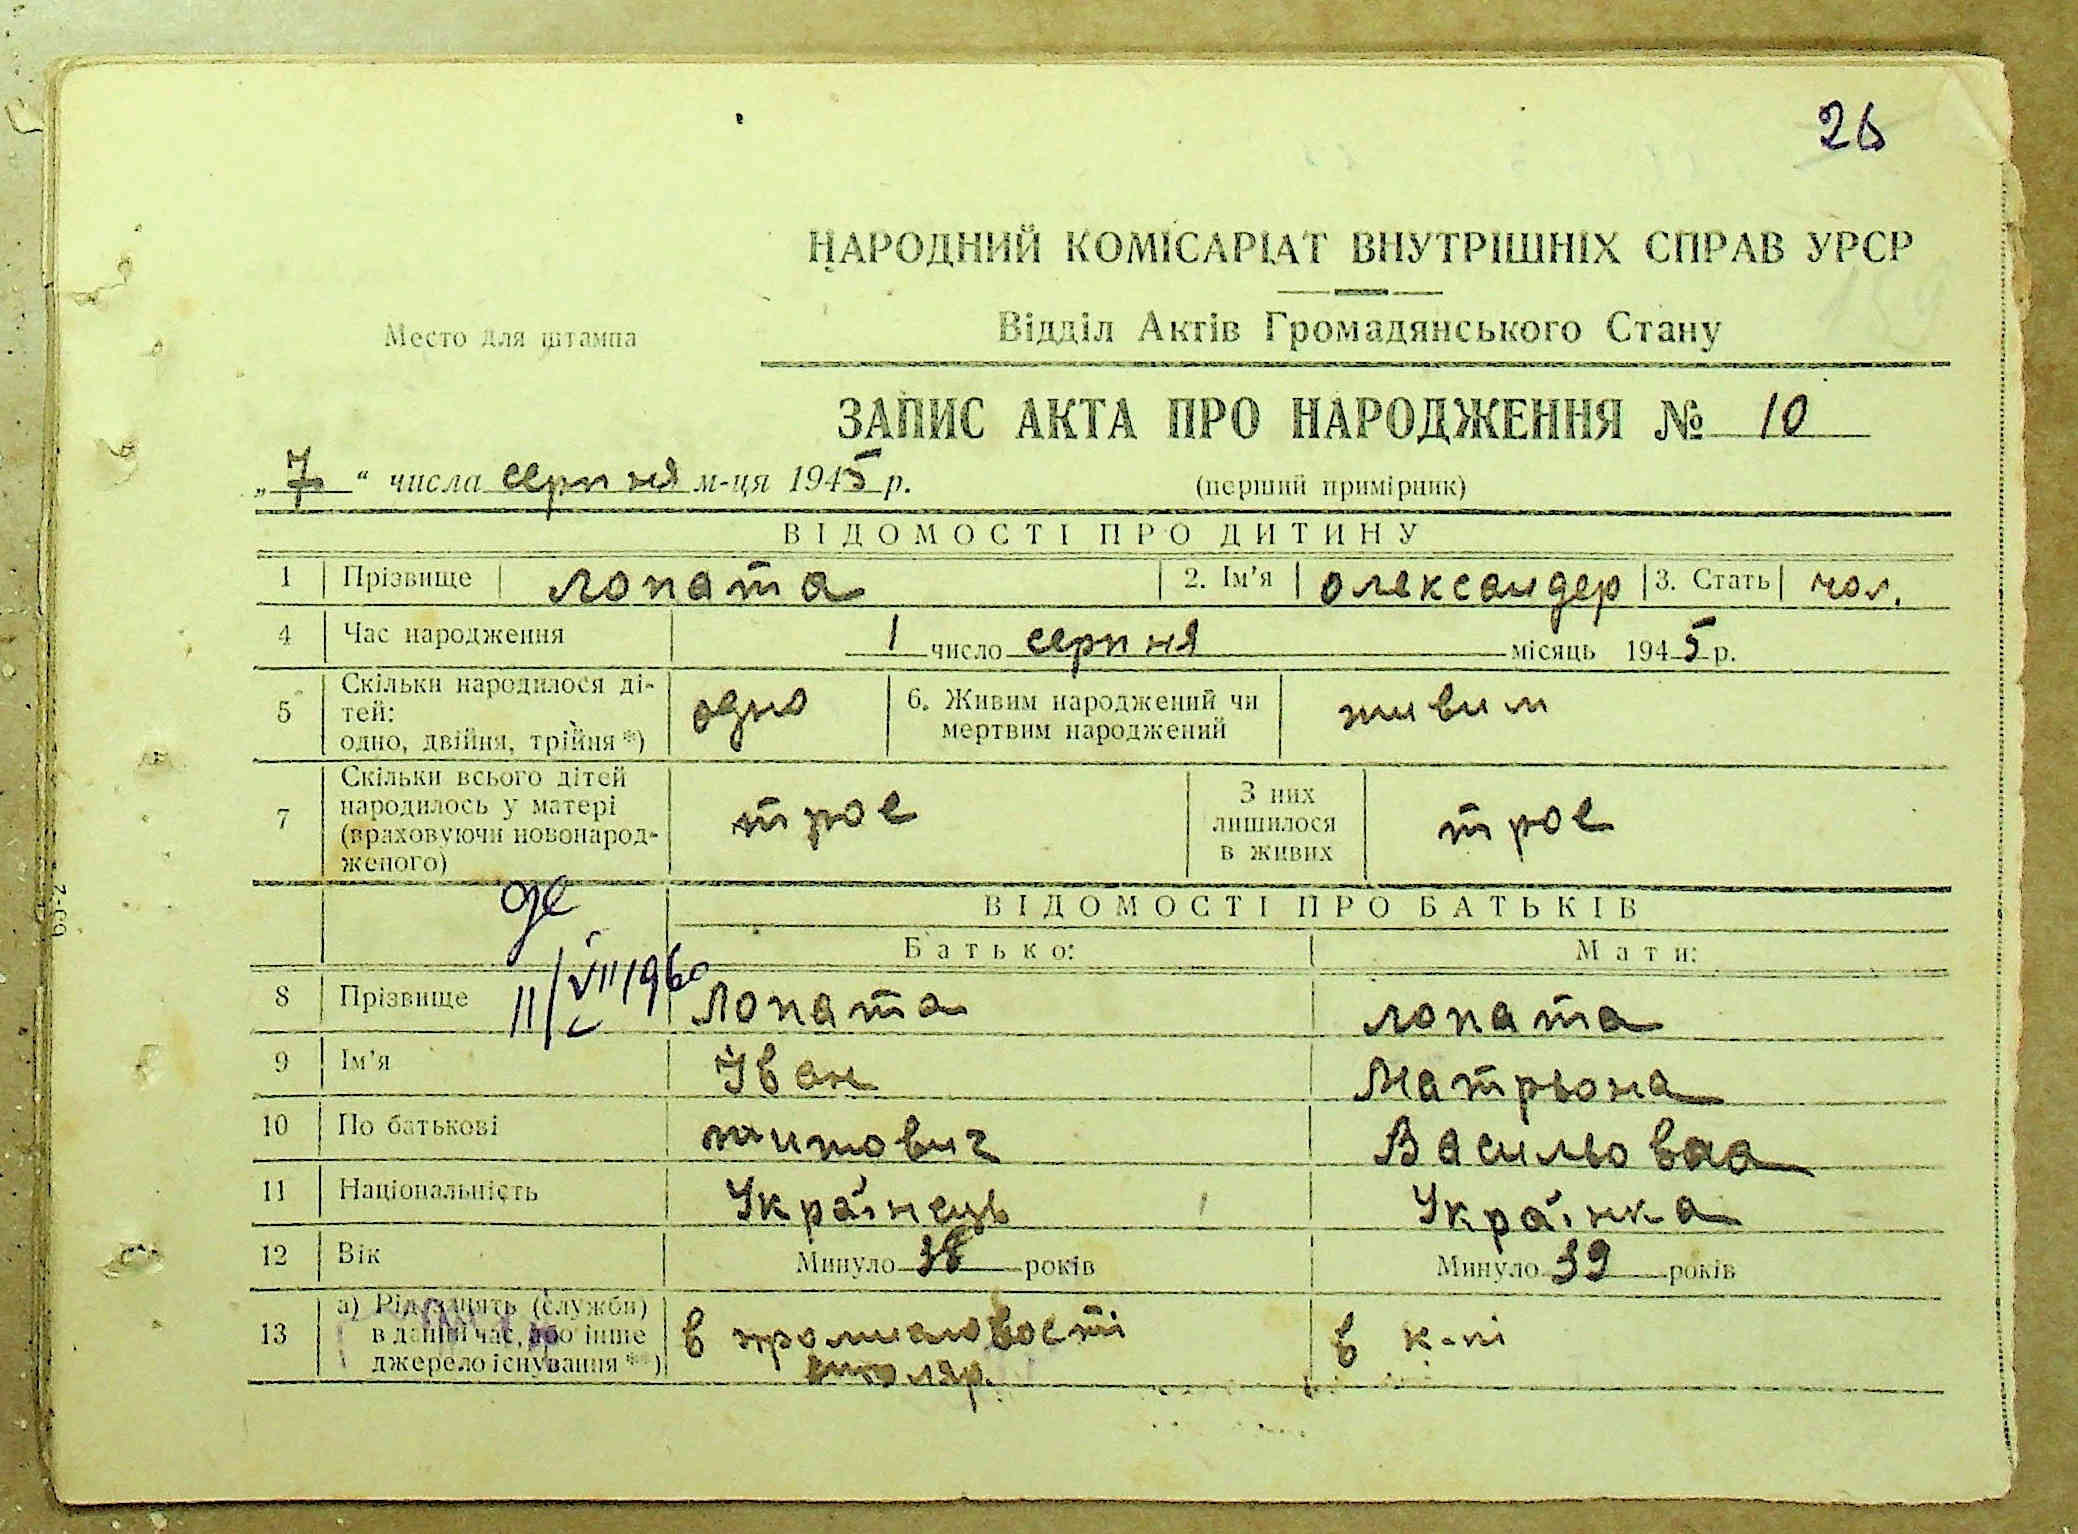 26
НАРОДНИЙ КОМІСАРІАТ ВНУТРІШНІХ СПРАВ УРСР
Место для штампа
Відділ Актів Громадянського Стану
ЗАПИС АКТА ПРО НАРОДЖЕННЯ № 10
„7“ числа серпня м-ця 1945 р.
(перший примірник)
ВІДОМОСТІ ПРО ДИТИНУ
1 Прізвище лопата 2. Ім'я олександер 3. Стать чол.
4 Час народження 1 число серпня місяць 1945 р.
5 Скільки народилося дітей: одно, двійня, трійня *) одно 6. Живим народжений чи мертвим народжений живим
7 Скільки всього дітей народилось у матері (враховуючи новонародженого) троє З них лишилося в живих троє
ВІДОМОСТІ ПРО БАТЬКІВ
Батько: Мати:
11/VII 1960
8 Прізвище Лопата лопата
9 Ім'я Іван Матрьона
10 По батькові титович Васильовна
11 Національність Українець Українка
12 Вік Минуло 38 років Минуло 39 років
13 а) Рід занять (служби) в даний час, або інше джерело існування **) в промисловості столяр. в к-пі